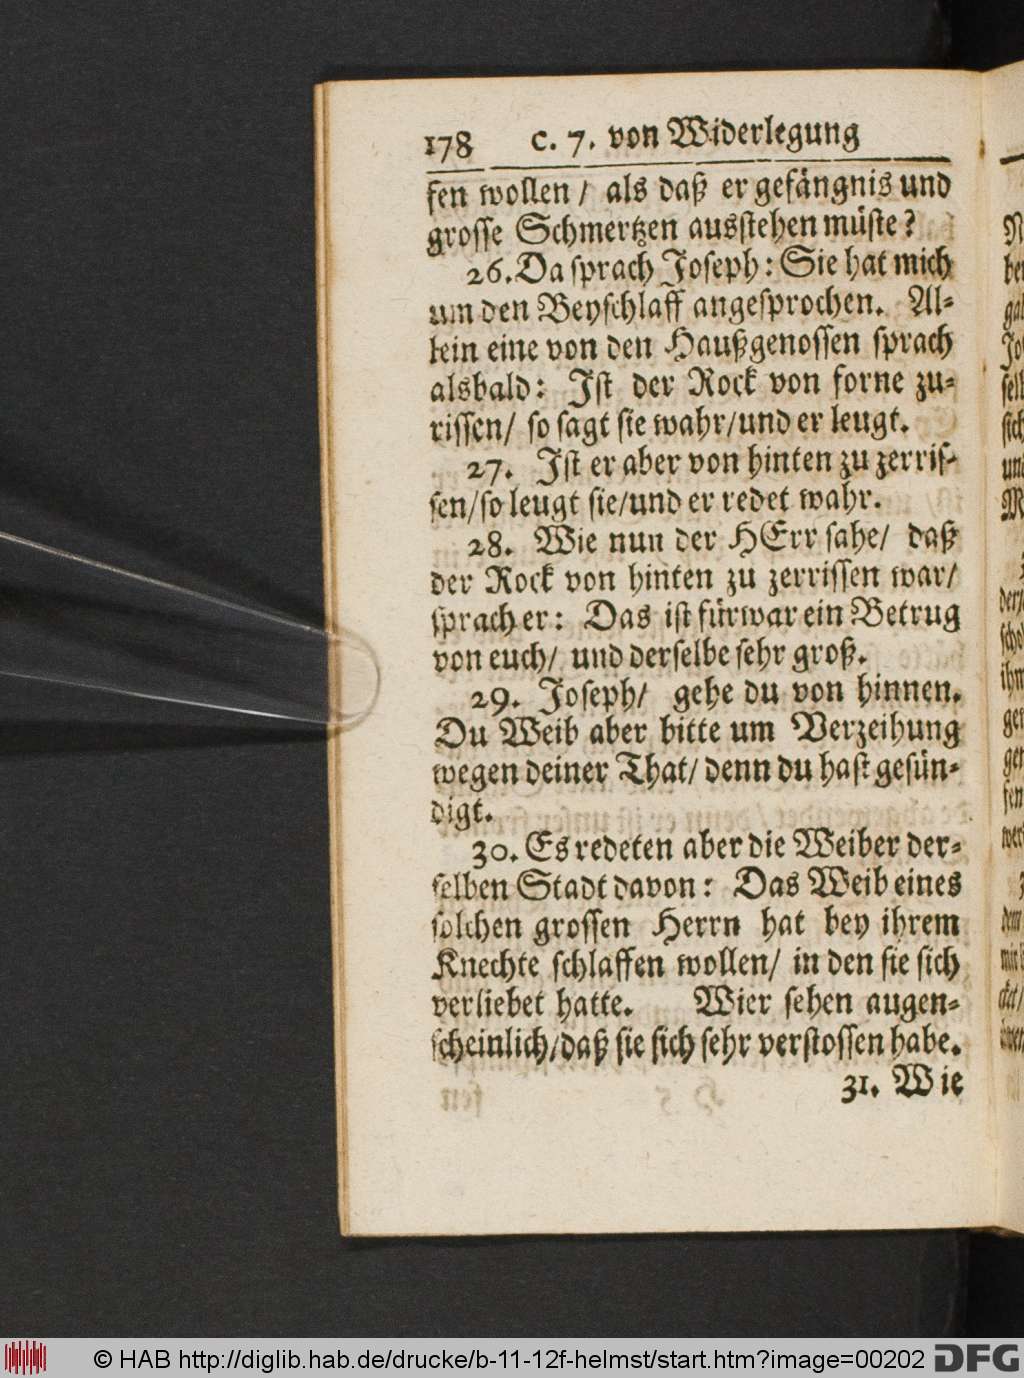 178 c. 7. von Widerlegung
fen wollen / als daß er gefängnis und
grosse Schmertzen ausstehen müste?
26. Da sprach Joseph: Sie hat mich
um den Beyschlaff angesprochen. Al-
lein eine von den Haußgenossen sprach
alsbald: Ist der Rock von forne zu-
rissen / so sagt sie wahr / und er leugt.
27. Ist er aber von hinten zu zerris-
sen / so leugt sie / und er redet wahr.
28. Wie nun der HErr sahe / daß
der Rock von hinten zu zerrissen war /
sprach er: Das ist fürwar ein Betrug
von euch / und derselbe sehr groß.
29. Joseph / gehe du von hinnen.
Du Weib aber bitte um Verzeihung
wegen deiner That / denn du hast gesün-
digt.
30. Es redeten aber die Weiber der-
selben Stadt davon: Das Weib eines
solchen grossen Herrn hat bey ihrem
Knechte schlaffen wollen / in den sie sich
verliebet hatte. Wier sehen augen-
scheinlich / daß sie sich sehr verstossen habe.
31. Wie
© HAB http://diglib.hab.de/drucke/b-11-12f-helmst/start.htm?image=00202 DFG